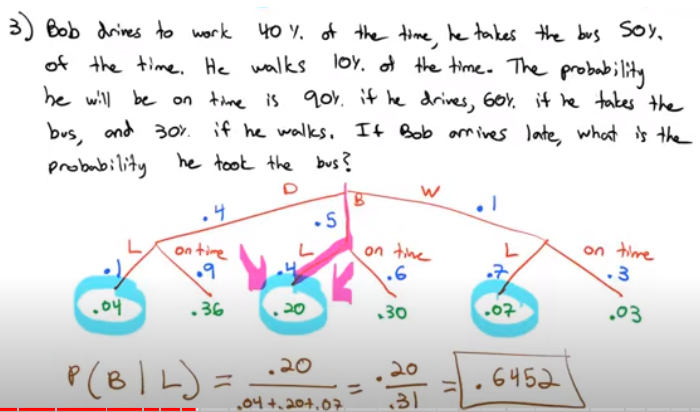 3) Bob drives to work 40%. of the time, he takes the bus 50%.
of the time. He walks 10%. of the time. The probability
he will be on time is 90%. if he drives, 60%. if he takes the
bus, and 30%. if he walks. If Bob arrives late, what is the
probability he took the bus?
D B W
.4 .5 .1
L on time L on time L on time
.1 .9 .4 .6 .7 .3
.04 .36 .20 .30 .07 .03
P(B|L) = .20 / .04+.20+.07 = .20 / .31 = .6452